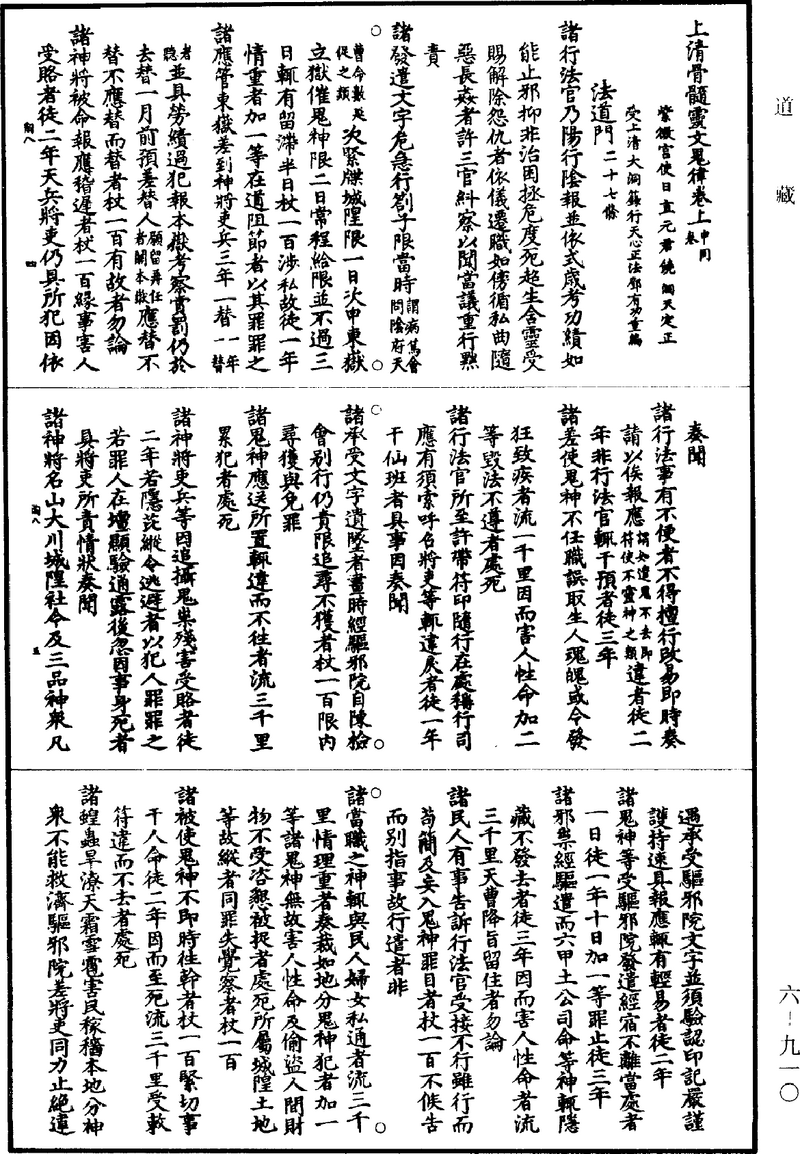 道藏
上清骨髓靈文鬼律卷上中同卷
紫微宮使日直元君饒洞天定正
受上清大洞籙行天心正法鄧有功重編
法道門二十七條
諸行法官乃陽行陰報並依式歲考功績如
能止邪抑非治困拯危度死超生含靈受
賜解除怨仇者依儀遷職如傍循私曲隨
惡長姦者許三官糾察以聞當議重行黜
責
諸發遣文字危急行劄子限當時謂病篤會問陰府天
曹命數延促之類次緊牒城隍限一日次申東嶽
立獄催鬼神限二日常程給限並不過三
日輒有留滯半日杖一百涉私故徒一年
情重者加一等在道阻節者以其罪罪之
諸應管東嶽差到神將吏兵三年一替一年一替
者聽並具勞績過犯報本嶽考察賞罰仍於
去替一月前預差替人願留再任者關本嶽應替不
替不應替而替者杖一百有故者勿論
諸神將被命報應稽遲者杖一百緣事害人
受賂者徒二年天兵將吏仍具所犯因依
奏聞
諸行法事有不便者不得擅行改易即時奏
請以俟報應謂如遣鬼不去即符使不靈神之類違者徒二
年非行法官輒干預者徒三年
諸差使鬼神不任職誤取生人魂魄或令發
狂致疾者流一千里因而害人性命加二
等毀法不遵者處死
諸行法官所至許帶符印隨行在處稱行司
應有須索呼名將吏等輒違戾者徒一年
干仙班者具事因奏聞
諸承受文字遺墜者晝時經驅邪院自陳檢
會別行仍責限追尋不獲者杖一百限內
尋獲與免罪
諸鬼神應送所置輒違而不往者流三千里
累犯者處死
諸神將吏兵等因追攝鬼祟殘害受賂者徒
二年若隱庇縱令逃避者以犯人罪罪之
若罪人在壇顯驗通露後忽因事身死者
具將吏所責情狀奏聞
諸神將名山大川城隍社令及三品神衆凡
遇承受驅邪院文字並須驗認印記嚴謹
護持速具報應輒有輕易者徒二年
諸鬼神等受驅邪院發遣經宿不離當處者
一日徒一年十日加一等罪止徒三年
諸邪祟經驅遣而六甲土公司命等神輒隱
藏不發去者徒三年因而害人性命者流
三千里天曹降旨留住者勿論
諸民人有事告訴行法官受接不行雖行而
苟簡及妄入鬼神罪目者杖一百不候告
而別指事故行遣者非
諸當職之神輒與民人婦女私通者流三千
里情理重者奏裁如地分鬼神犯者加一
等諸鬼神無故害人性命及偷盜人間財
物不受咨懇被捉者處死所屬城隍土地
等故縱者同罪失覺察者杖一百
諸被使鬼神不即時往幹者杖一百緊切事
干人命徒二年因而至死流三千里受敕
符違而不去者處死
諸蝗蟲旱潦天霜雪雹害民稼穡本地分神
衆不能救濟驅邪院差將吏同力止絕違
六-九一〇